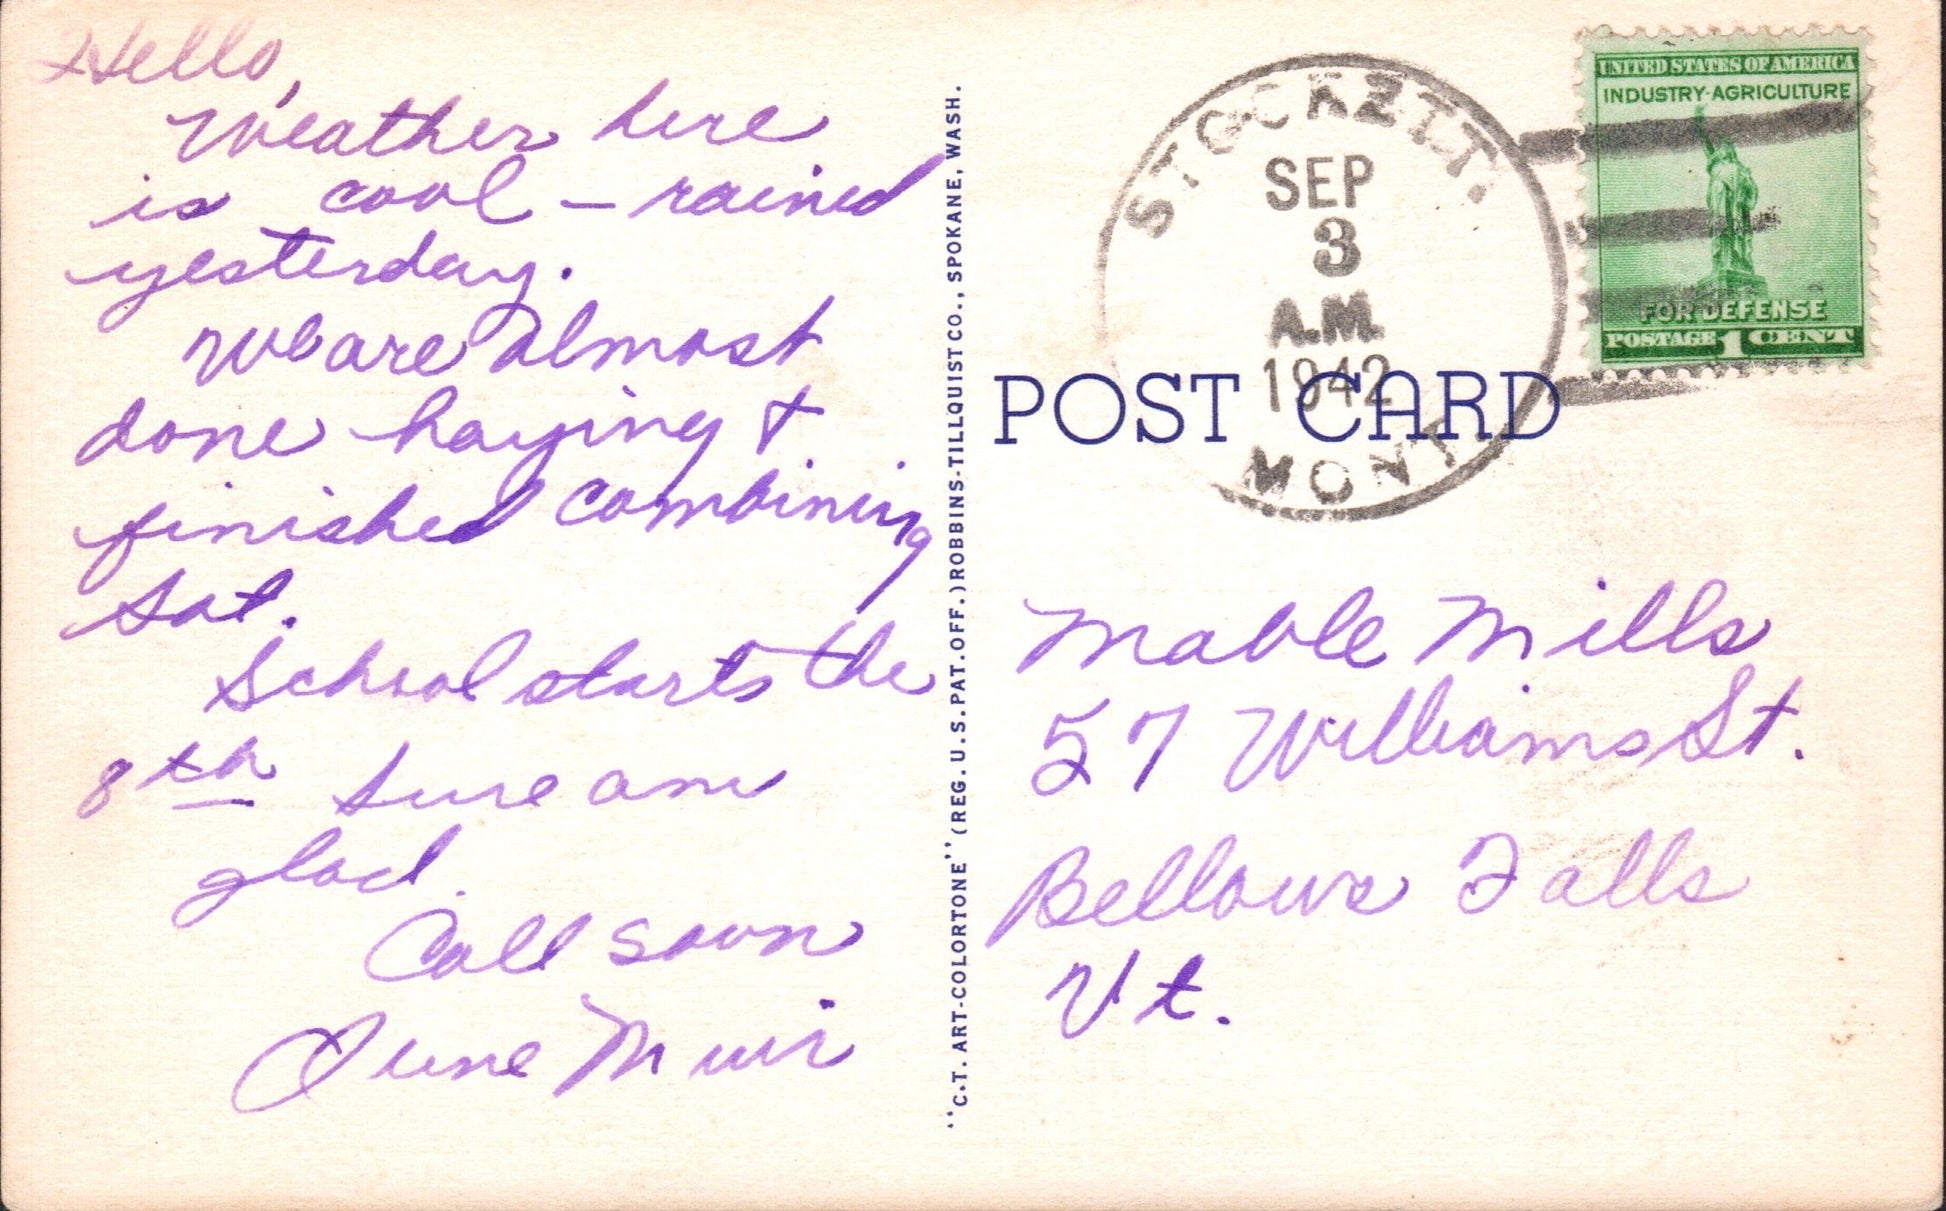 Hello,
Weather here
is cool – rained
yesterday.
We are almost
done haying +
finished combining
Sat.
School starts the
8th sure am
glad.
Call soon
June Muir
"C.T. ART-COLORTONE" (REG. U.S. PAT. OFF.) ROBBINS-TILLQUIST CO., SPOKANE, WASH.
STOCKETT.
SEP
3
A.M.
1942
MONT.
UNITED STATES OF AMERICA
INDUSTRY-AGRICULTURE
FOR DEFENSE
POSTAGE 1 CENT
POST CARD
Mable Mills
57 Williams St.
Bellows Falls
Vt.